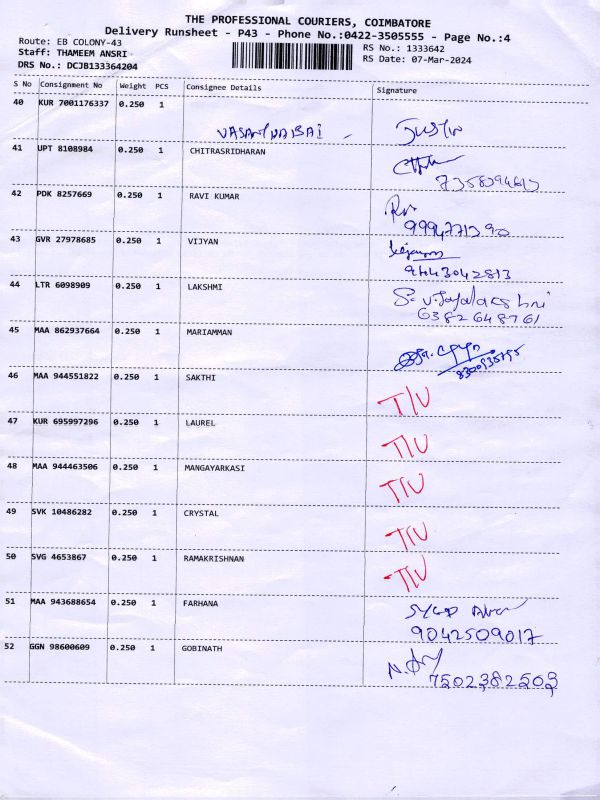 THE PROFESSIONAL COURIERS, COIMBATORE
Delivery Runsheet - P43 - Phone No.:0422-3505555 - Page No.:4
Route: EB COLONY-43
RS No.: 1333642
Staff: THAMEEM ANSRI
RS Date: 07-Mar-2024
DRS No.: DCJB133364204
S No Consignment No Weight PCS Consignee Details Signature
40 KUR 7001176337 0.250 1
VASANTHABAI - Justin
41 UPT 8108984 0.250 1 CHITRASRIDHARAN
7358394613
42 PDK 8257669 0.250 1 RAVI KUMAR
43 GVR 27978685 0.250 1 VIJYAN
9443042813
44 LTR 6098909 0.250 1 LAKSHMI S. Vijayalakshmi
6382648761
45 MAA 862937664 0.250 1 MARIAMMAN
46 MAA 944551822 0.250 1 SAKTHI T/U
47 KUR 695997296 0.250 1 LAUREL T/U
48 MAA 944463506 0.250 1 MANGAYARKASI T/U
49 SVK 10486282 0.250 1 CRYSTAL T/U
50 SVG 4653867 0.250 1 RAMAKRISHNAN T/U
51 MAA 943688654 0.250 1 FARHANA
9042509017
52 GGN 98600609 0.250 1 GOBINATH
7502382503